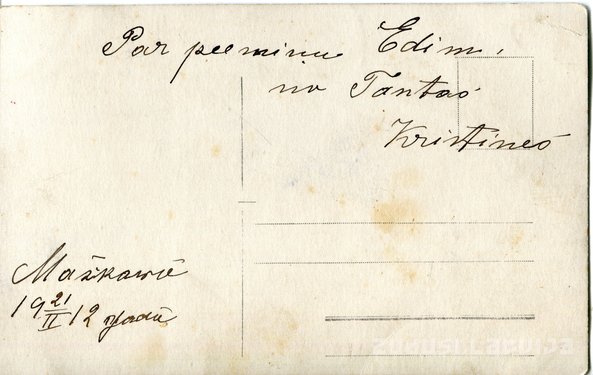 Par peeminu Edim,
no Tantas
Kristines
Maskawā
19 21/II 12 gadā